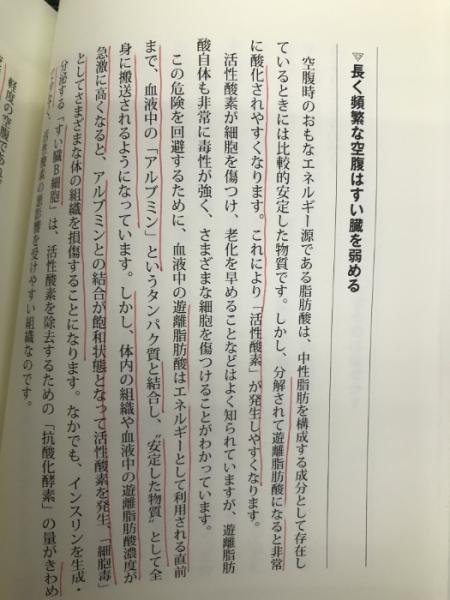 ▽長く頻繁な空腹はすい臓を弱める
空腹時のおもなエネルギー源である脂肪酸は、中性脂肪を構成する成分として存在し
ているときには比較的安定した物質です。しかし、分解されて遊離脂肪酸になると非常
に酸化されやすくなります。これにより「活性酸素」が発生しやすくなります。
活性酸素が細胞を傷つけ、老化を早めることなどはよく知られていますが、遊離脂肪
酸自体も非常に毒性が強く、さまざまな細胞を傷つけることがわかっています。
この危険を回避するために、血液中の遊離脂肪酸はエネルギーとして利用される直前
まで、血液中の「アルブミン」というタンパク質と結合し、〝安定した物質〟として全
身に搬送されるようになっています。しかし、体内の組織や血液中の遊離脂肪酸濃度が
急激に高くなると、アルブミンとの結合が飽和状態となって活性酸素を発生、「細胞毒」
としてさまざまな体の組織を損傷することになります。なかでも、インスリンを生成・
分泌する「すい臓B細胞」は、活性酸素を除去するための「抗酸化酵素」の量がきわめ
活性酸素の悪影響を受けやすい組織なのです。
軽度の空腹であれ